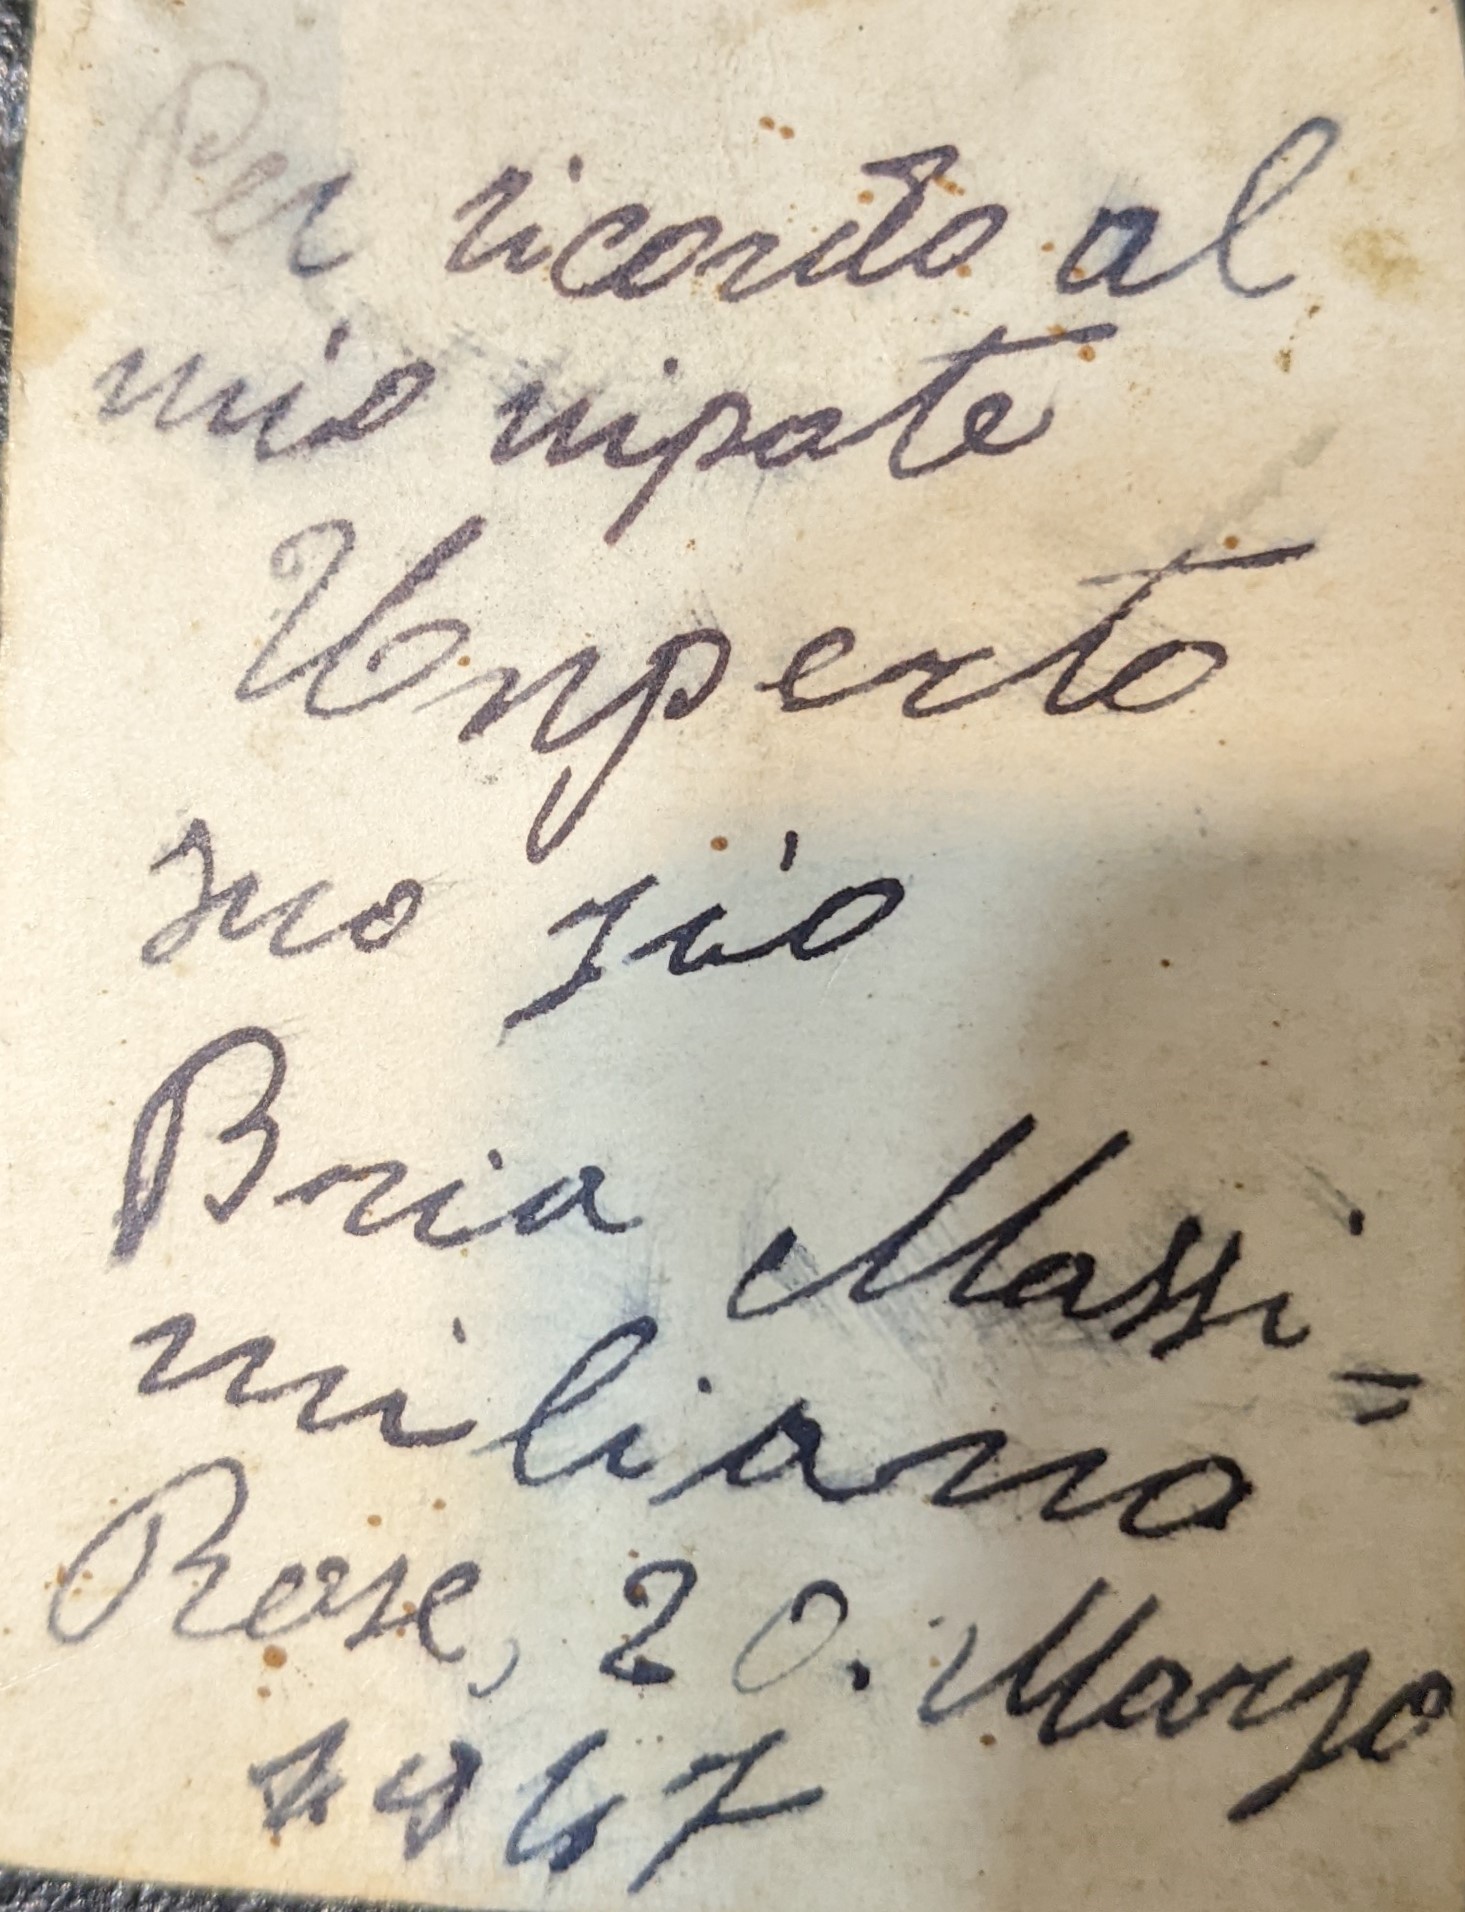 Per ricordo al
mio nipote
Umperto
suo zio
Bria Massi=
miliano
Rose, 20. Marzo
1967